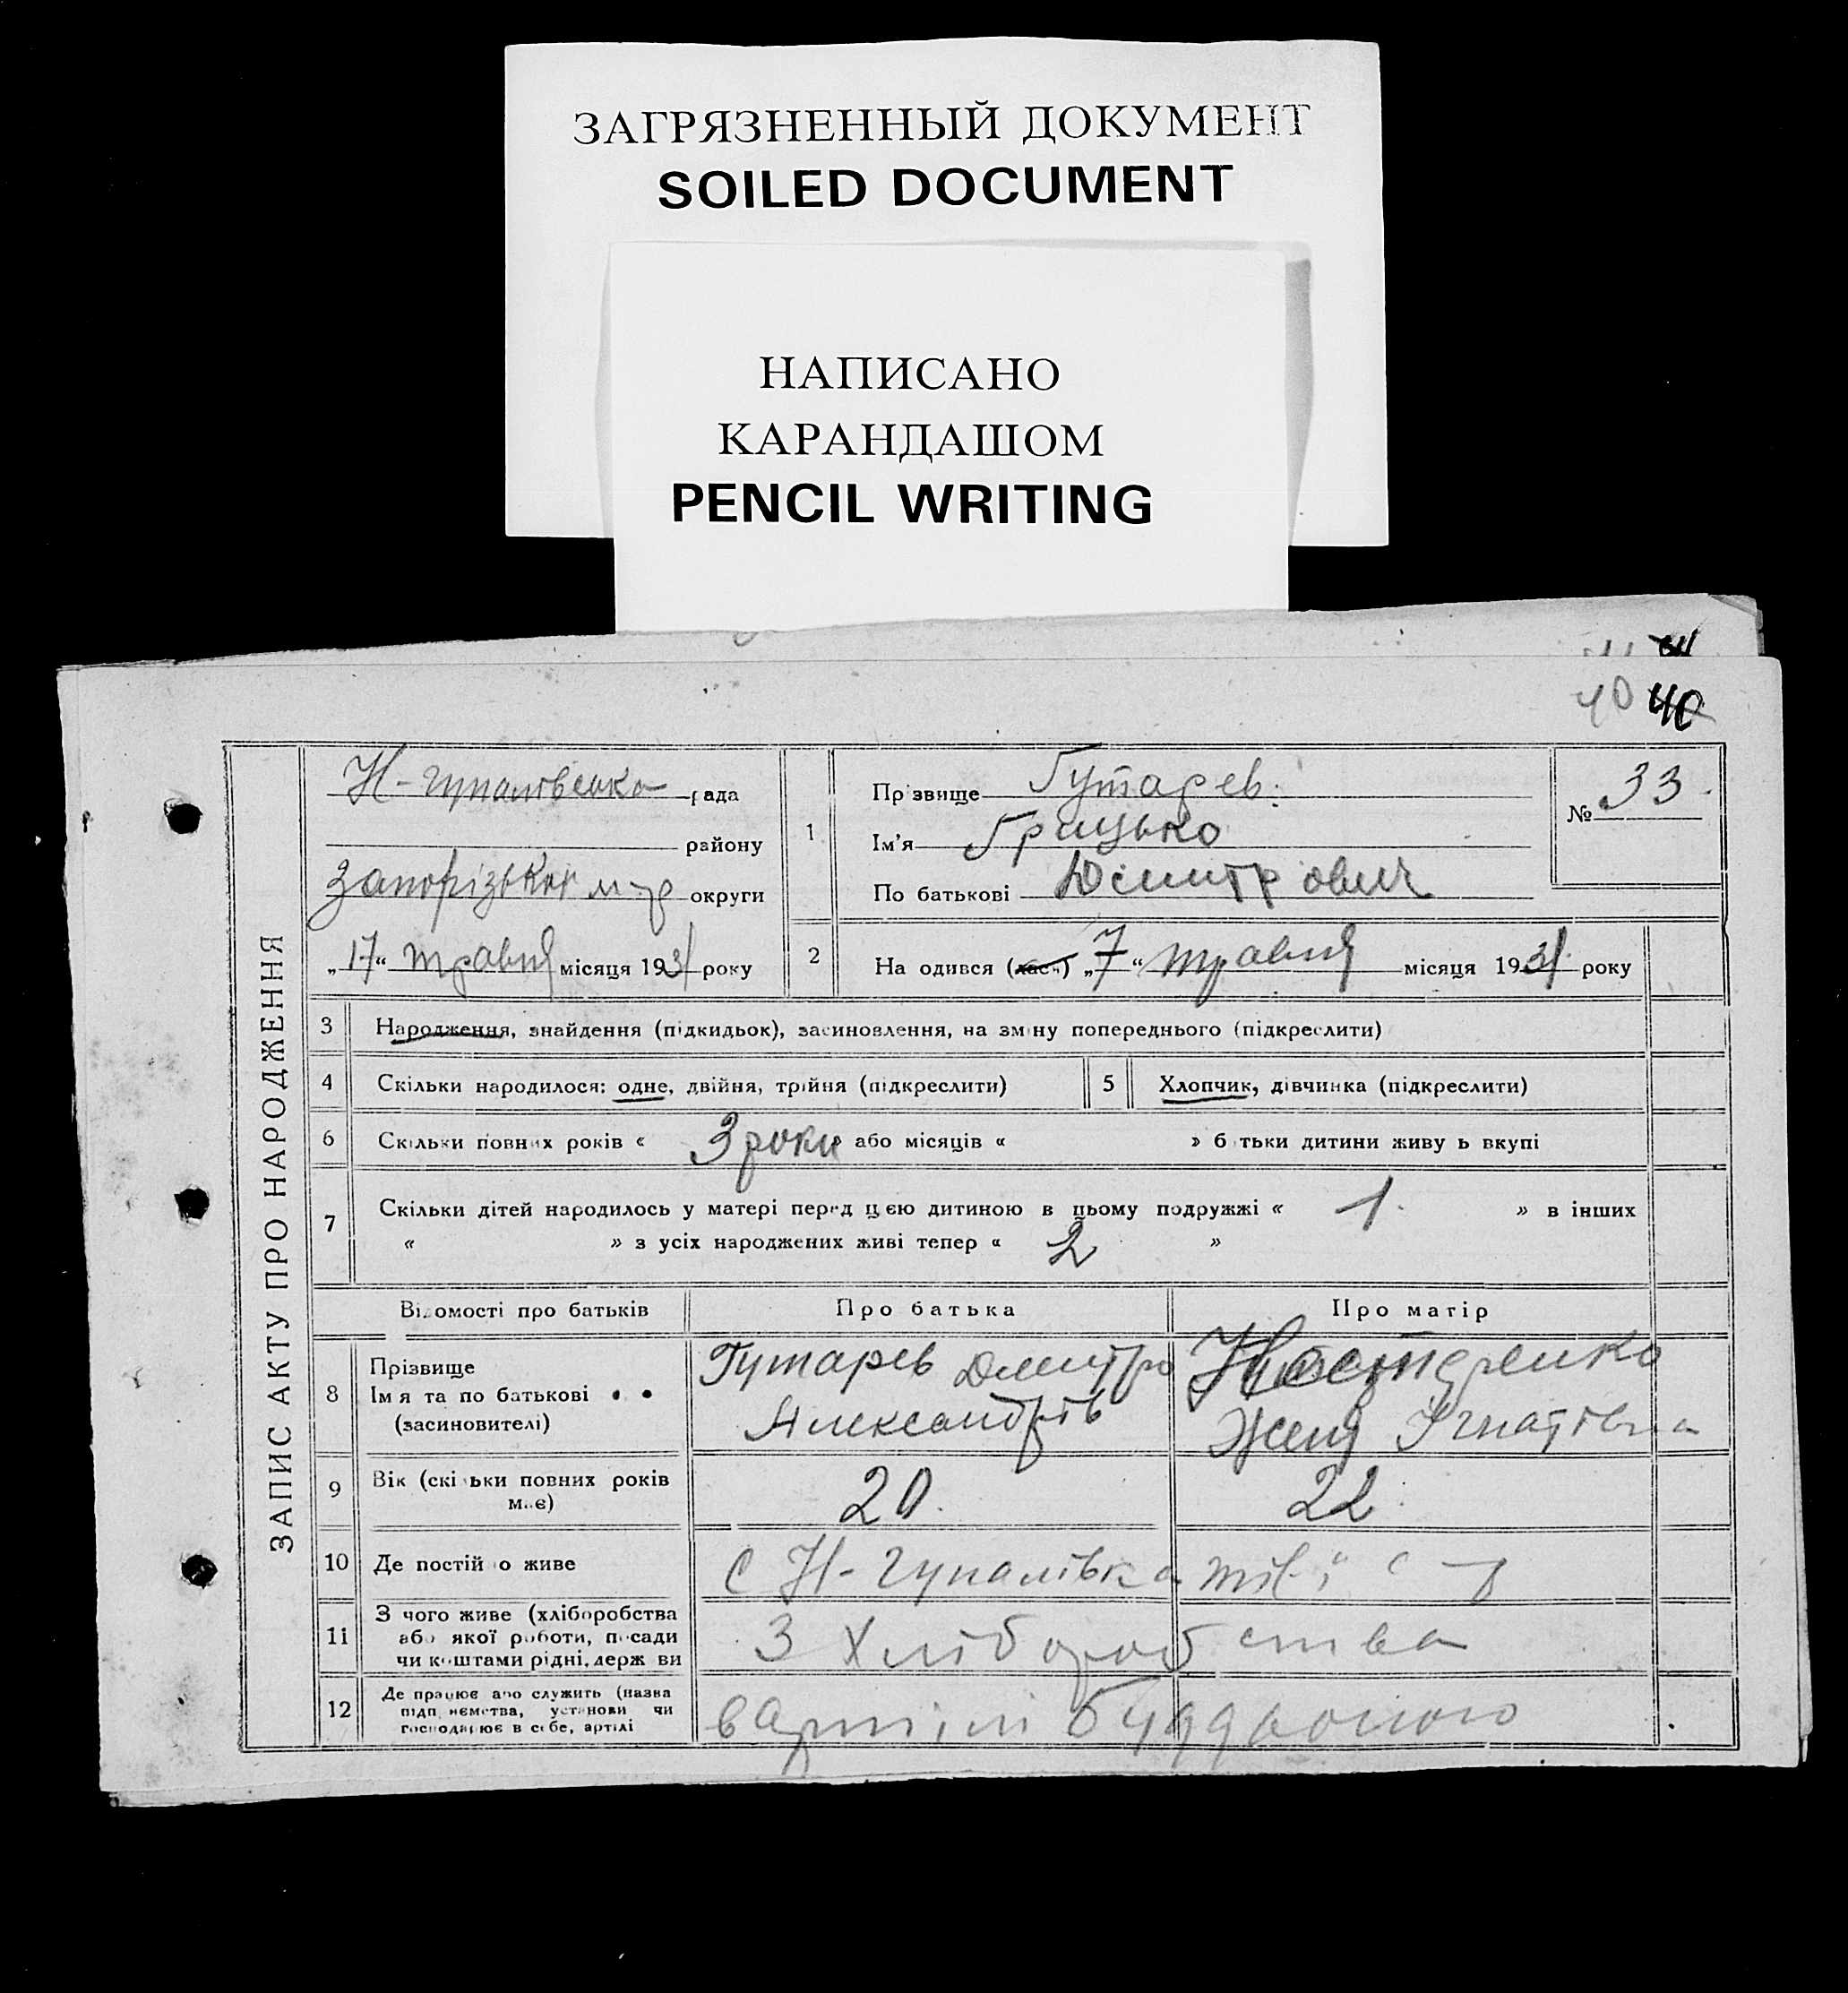 ЗАГРЯЗНЕННЫЙ ДОКУМЕНТ
SOILED DOCUMENT
НАПИСАНО
КАРАНДАШОМ
PENCIL WRITING
40 40
ЗАПИС АКТУ ПРО НАРОДЖЕННЯ
Н-гупалівська рада
району
Запорізької округи
„17“ травня місяця 1931 року
1
Прізвище Гутарев
Ім'я Грицько
По батькові Дімитрович
№ 33
2
На одився „7“ травня місяця 1931 року
3 Народження, знайдення (підкидьок), засиновлення, на зміну попереднього (підкреслити)
4 Скільки народилося: одне, двійня, трійня (підкреслити)
5 Хлопчик, дівчинка (підкреслити)
6 Скільки повних років « 3 роки або місяців « » б тьки дитини живу ь вкупі
7 Скільки дітей народилось у матері перед цією дитиною в цьому подружжі « 1 » в інших
« » з усіх народжених живі тепер « 2 »
Відомості про батьків Про батька Про матір
8 Прізвище
Імя та по батькові
(засиновителі)
Гутарев Дмитро
Александрів
Нестеренко
Женя Ігнатівна
9 Вік (скільки повних років
має)
20. 22
10 Де постій о живе
с Н-гупалівка
11 З чого живе (хліборобства
або якої роботи, посади
чи коштами рідні, держ ви
З Хліборобства
12 Де працює або служить (назва
підп иємства, установи чи
господарює в себе, артілі
в Артілі Буддьоного